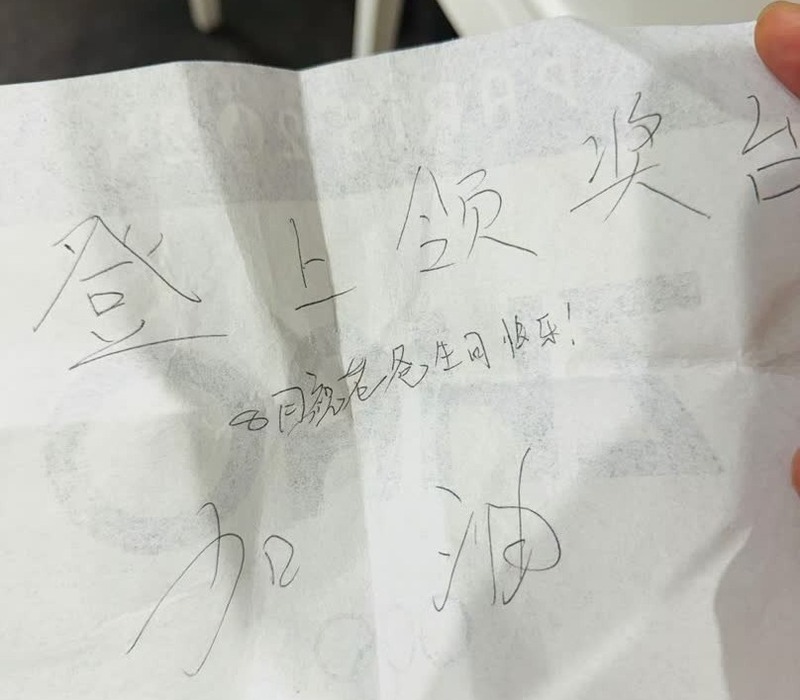 登上领奖台
8月祝老爸生日快乐!
加油